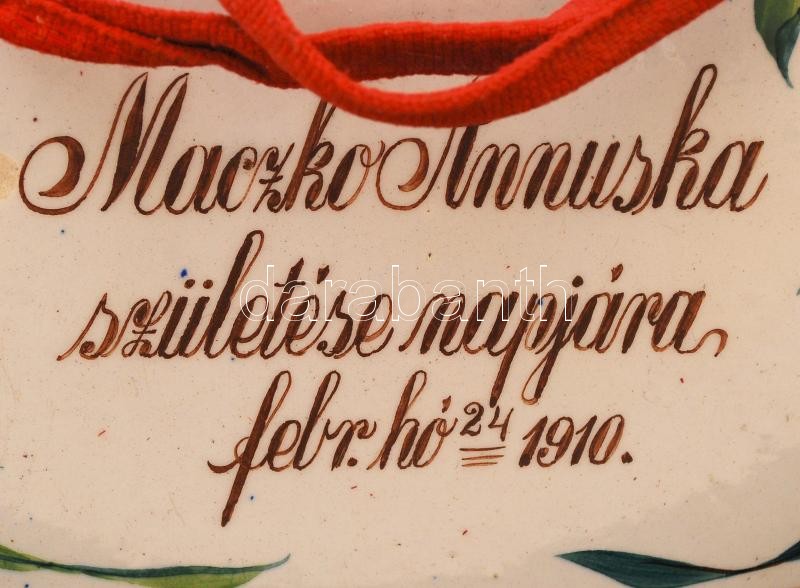 Maczko Annuska
születése napjára,
darabanth
febr. hó 24 1910.